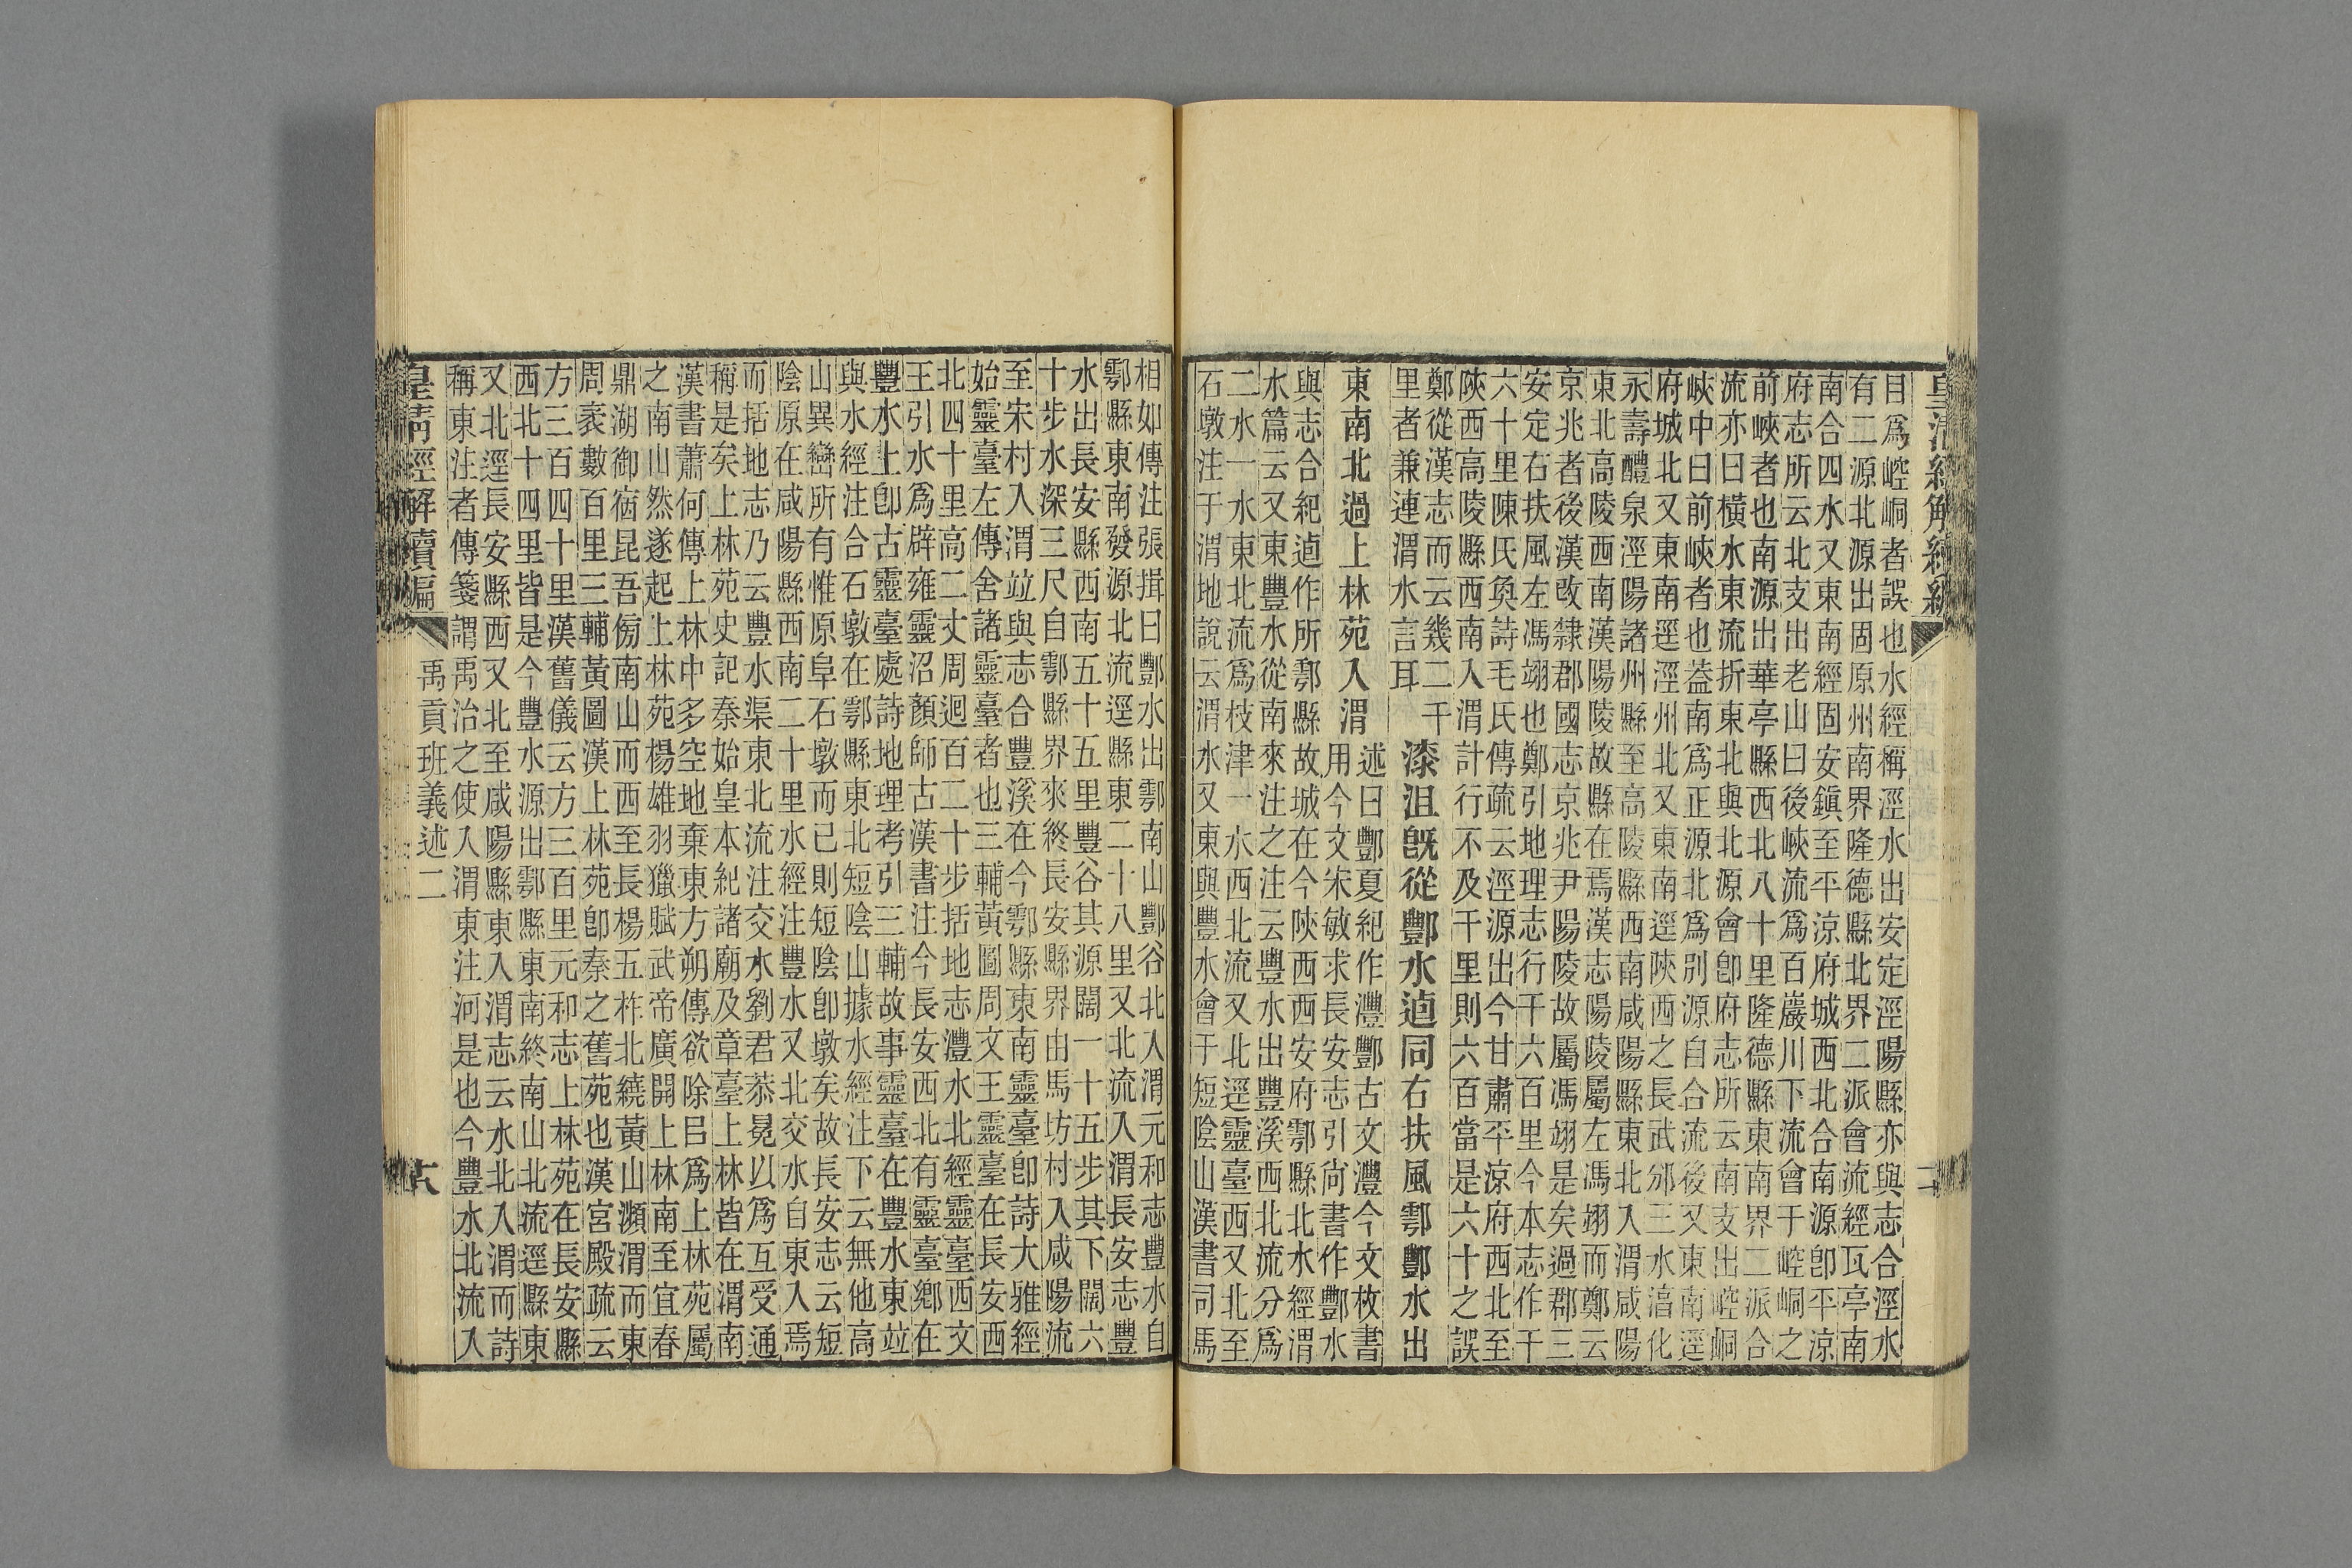 皇清經解續編
目爲崆峒者誤也水經稱涇水出安定涇陽縣亦與志合涇水
有二源北源出固原州南界隆德縣北界二派會流經瓦亭南
南合四水又東南經固安鎮至平涼府城西北合南源卽平涼
府志所云北支出老山曰後峽流爲百巖川下流會于崆峒之
前峽者也南源出華亭縣西北八十里隆德縣東南界二派合
流亦曰橫水東流折東北與北源會卽府志所云南支出崆峒
峽中曰前峽者也葢南爲正源北爲別源自合流後又東南逕
府城北又東南逕涇州北又東南逕陝西之長武邠三水淳化
永壽醴泉涇陽諸州縣至高陵縣西南咸陽縣東北入渭咸陽
東北高陵西南漢陽陵故縣在焉漢志陽陵屬左馮翊而鄭云
京兆者後漢改隸郡國志京兆尹陽陵故屬馮翊是矣過郡三
安定右扶風左馮翊也鄭引地理志行千六百里今本志作千
六十里陳氏奐詩毛氏傳疏云涇源出今甘肅平涼府西北至
陝西高陵縣西南入渭計行不及千里則六百當是六十之誤
鄭從漢志而云幾二千
里者兼連渭水言耳
漆沮旣從酆水逌同右扶風鄠酆水出
東南北過上林苑入渭
述曰酆夏紀作灃酆古文灃今文枚書
用今文宋敏求長安志引尙書作酆水
與志合紀逌作所鄠縣故城在今陝西西安府鄠縣北水經渭
水篇云又東豐水從南來注之注云豐水出豐溪西北流分爲
二水一水東北流爲枝津一水西北流又北逕靈臺西又北至
石墩注于渭地說云渭水又東與豐水會于短陰山漢書司馬
相如傳注張揖曰酆水出鄠南山酆谷北入渭元和志豐水自
鄠縣東南發源北流逕縣東二十八里又北流入渭長安志豐
水出長安縣西南五十五里豐谷其源闊一十五步其下闊六
十步水深三尺自鄠縣界來終長安縣界由馬坊村入咸陽流
至宋村入渭竝與志合豐溪在今鄠縣東南靈臺卽詩大雅經
始靈臺左傳舍諸靈臺者也三輔黃圖周文王靈臺在長安西
北四十里高二丈周迴百二十步括地志灃水北經靈臺西文
王引水爲辟雍靈沼顏師古漢書注今長安西北有靈臺鄕在
豐水上卽古靈臺處詩地理考引三輔故事靈臺在豐水東竝
與水經注合石墩在鄠縣東北短陰山據水經注下云無他高
山異巒所有惟原阜石墩而已則短陰卽墩矣故長安志云短
陰原在咸陽縣西南二十里水經注豐水又北交水自東入焉
而括地志乃云豐水渠東北流注交水劉君恭冕以爲互受通
稱是矣上林苑史記秦始皇本紀諸廟及章臺上林皆在渭南
漢書蕭何傳上林中多空地棄東方朔傳欲除㠯爲上林苑屬
之南山然遂起上林苑楊雄羽獵賦武帝廣開上林南至宜春
鼎湖御宿昆吾傍南山而西至長楊五柞北繞黃山瀕渭而東
周袤數百里三輔黃圖漢上林苑卽秦之舊苑也漢宮殿疏云
方三百四十里漢舊儀云方三百里元和志上林苑在長安縣
西北十四里皆是今豐水源出鄠縣東南終南山北流逕縣東
又北逕長安縣西又北至咸陽縣東入渭志云水北入渭而詩
稱東注者傳箋謂禹治之使入渭東注河是也今豐水北流入
皇清經解續編
禹貢班義述二